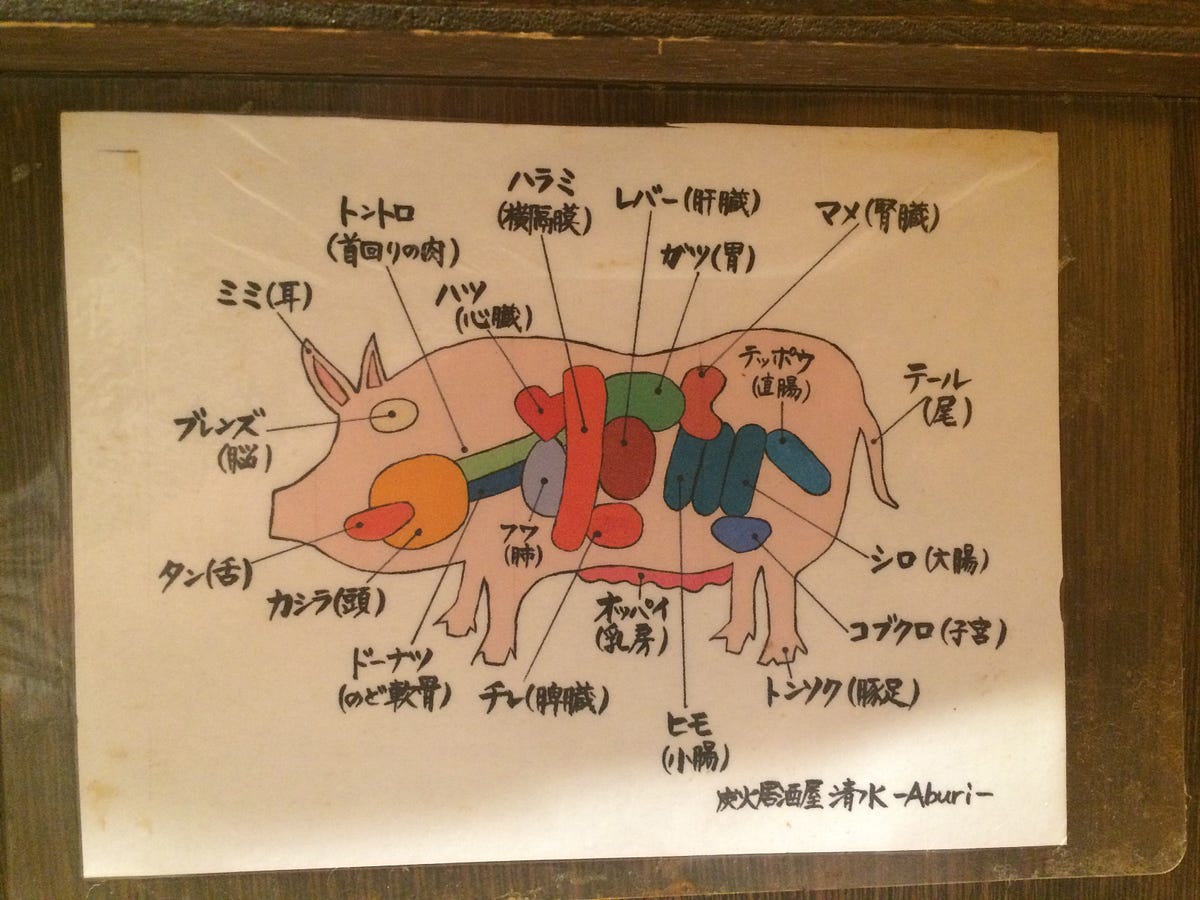 ハラミ
(横隔膜)
レバー(肝臓)
マメ(腎臓)
トントロ
(首回りの肉)
ガツ(胃)
ミミ(耳)
ハツ
(心臓)
テッポウ
(直腸)
テール
(尾)
ブレンズ
(脳)
フワ
(肺)
タン(舌)
カシラ(頭)
シロ(大腸)
オッパイ
(乳房)
コブクロ(子宮)
ドーナツ
(のど軟骨)
チレ(脾臓)
トンソク(豚足)
ヒモ
(小腸)
炭火居酒屋 清水 -Aburi-